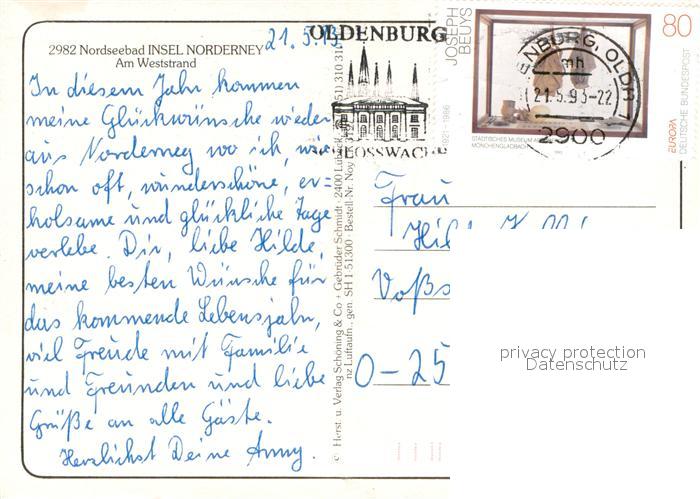 2982 Nordseebad INSEL NORDERNEY
Am Weststrand
21. 5. 93
In diesem Jahr kommen
meine Glückwünsche wieder
aus Norderney wo ich, wie
schon oft, wunderschöne, er=
holsame und glückliche Tage
verlebe. Dir, liebe Hilde,
meine besten Wünsche für
das kommende Lebensjahr,
viel Freude mit Familie
und Freunden und liebe
Grüße an alle Gäste.
Herzlichst Deine Anny.
© Herst. u. Verlag Schöning & Co + Gebrüder Schmidt · 2400 Lübeck
nz Luftaufn., gen. SH 1-51300 · Bestell-Nr. Noy
OLDENBURG
SCHLOSSWACHE
JOSEPH
BEUYS
1921 - 1986
STÄDTISCHES MUSEUM
MÖNCHENGLADBACH
80
DEUTSCHE BUNDESPOST
EUROPA
OLDB
mh
21.5.93-22
2900
Frau
Voßs
O-25
privacy protection
Datenschutz